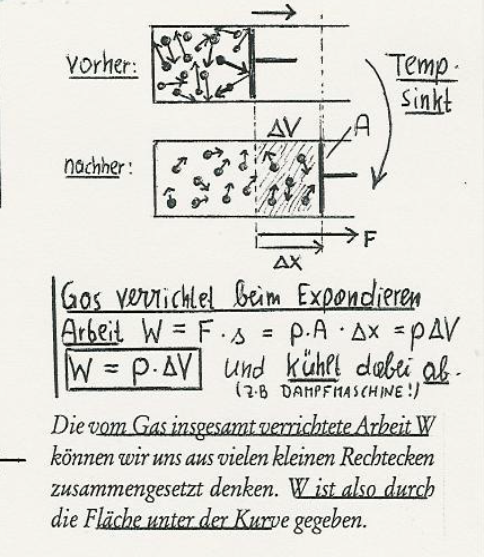 vorher:
Temp.
sinkt
ΔV
A
nachher:
F
Δx
Gas verrichtet beim Expandieren
Arbeit W = F · s = p · A · Δx = pΔV
W = p · ΔV und kühlt dabei ab.
(z.B DAMPFMASCHINE!)
Die vom Gas insgesamt verrichtete Arbeit W
können wir uns aus vielen kleinen Rechtecken
zusammengesetzt denken. W ist also durch
die Fläche unter der Kurve gegeben.